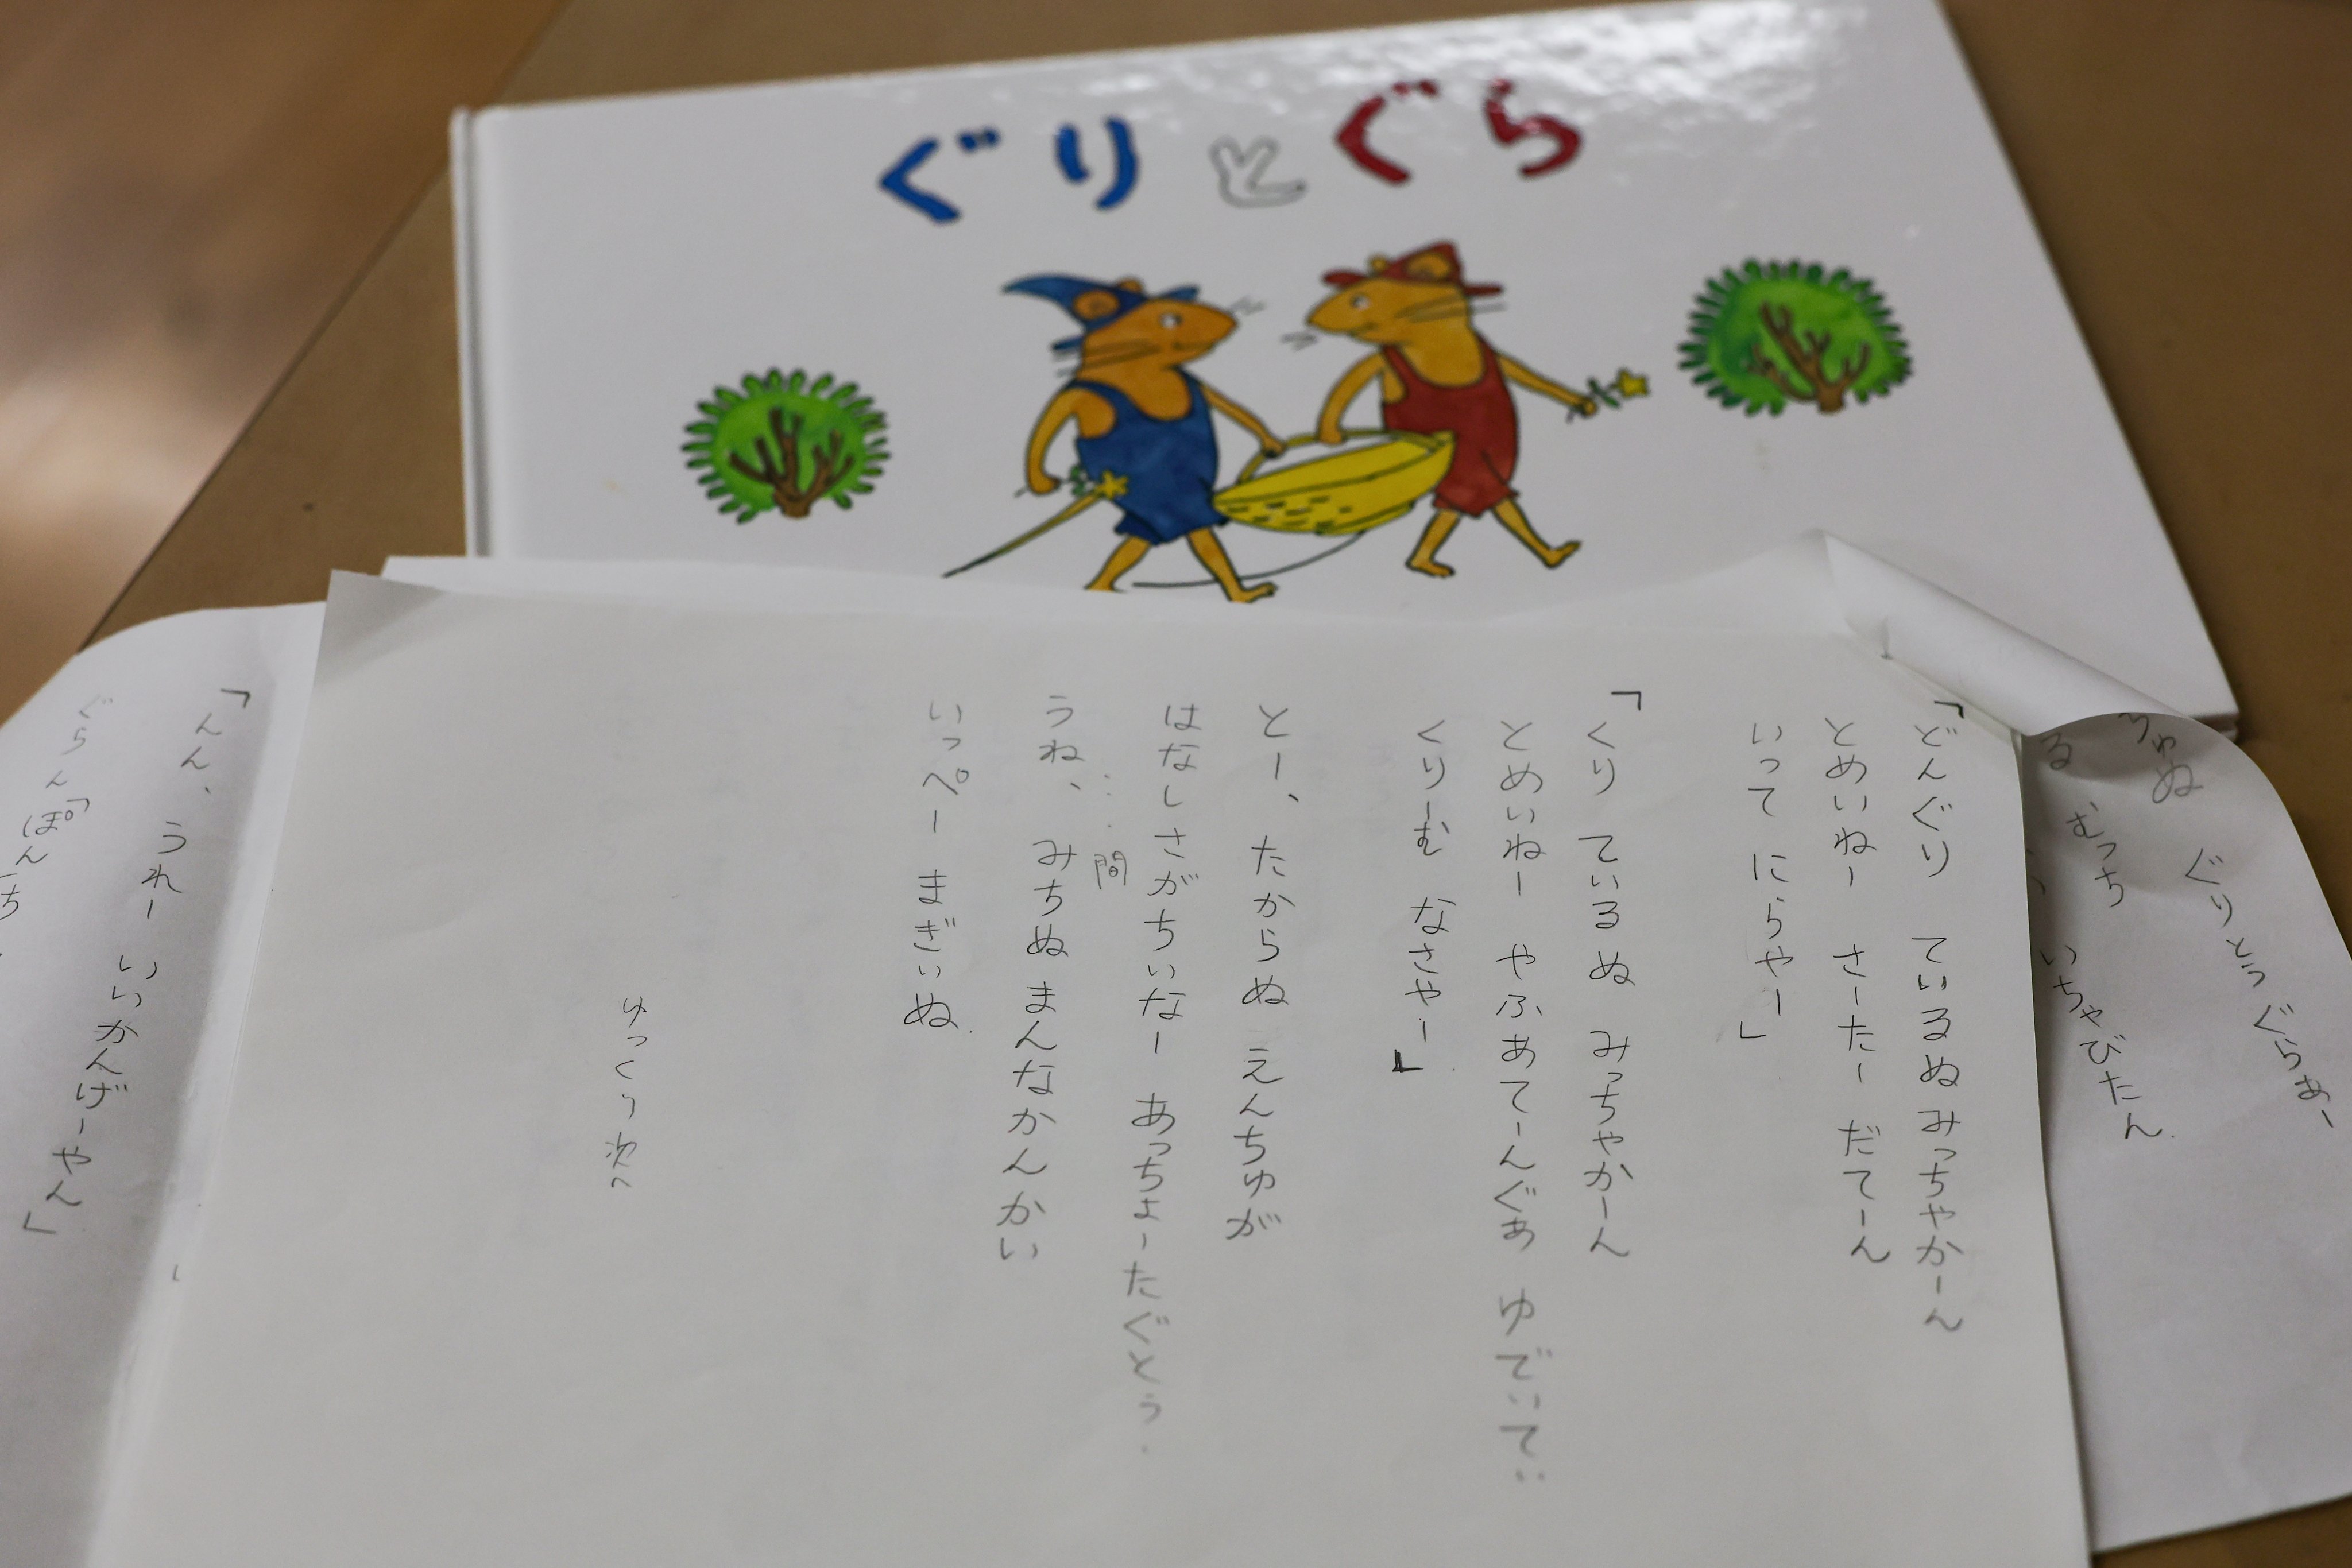 ぐりとぐら
「どんぐり てぃるぬ みっちゃかーん
とめいねー さーたー だてーん
いって にらやー」
「くり てぃるぬ みっちゃかーん
とめいねー やふぁてーんぐゎ ゆでぃてぃ
くりーむ なさやー」
とー、たからぬ えんちゅが
はなしさがちぃなー あっちょーたぐとぅ.
間
うね、 みちぬ まんなかんかい
いっぺー まぎぃぬ.
ゆっくり次へ
「んん、うれー いいかんげーやん」
ぐらん「ぽん
ちゅぬ ぐりとぅ ぐらぁー
る むっち いちゃびたん.